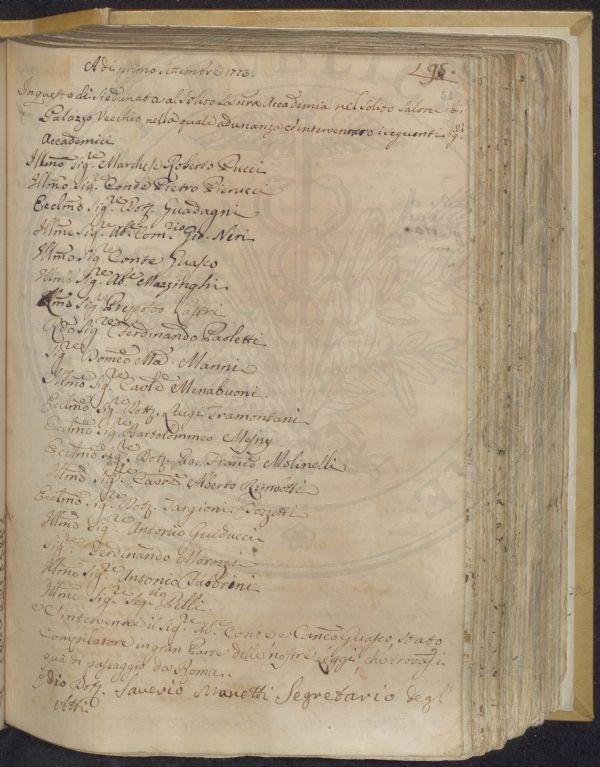 195.
51
A di primo Settembre 1773.
In questo dì Si adunata al Solito la nra Accademia nel Solito Salone di
Palazzo Vecchio nella quale adunanza c'intervennero i seguenti Sigri
Accademici
Illmo Sigre Marchese Roberto Pucci
Illmo Sigre Conte Pietro Pierucci
Ecclmo Sigre Dott. Guadagni
Illmo Sigre Abe Comrio Gio. Neri
Illmo Sigre Conte Guasco
Illmo Sigre Abe Mazzinghi
Rmo Sigre Preposto Lastri
Rdo Sigre Ferdinando Paoletti
Sigre Domco Ma Manni
Illmo Sigre Cavle Menabuoni
Ecclmo Sigre Dott. Luigi Tramontani
Ecclmo Sigre Bartolommeo Mesny
Ecclmo Sigre Dott. Gio. Franco Molinelli
Illmo Sigre Cavre Alberto Rimbotti
Ecclmo Sigre Dott. Targioni Tozzetti
Illmo Sigre Antonio Guiducci
Sigre Ferdinando Morozzi
Illmo Sigre Antonio Fabbrini
Illmo Sigre Segrio
e C'intervenne il Sigre Abe Conte e Canco Guasco, stato
Compilatore in gran parte delle nostre Leggi, che trovasi
quà di passaggio da Roma.
Io Dott. Saverio Manetti Segretario degl'
Atti